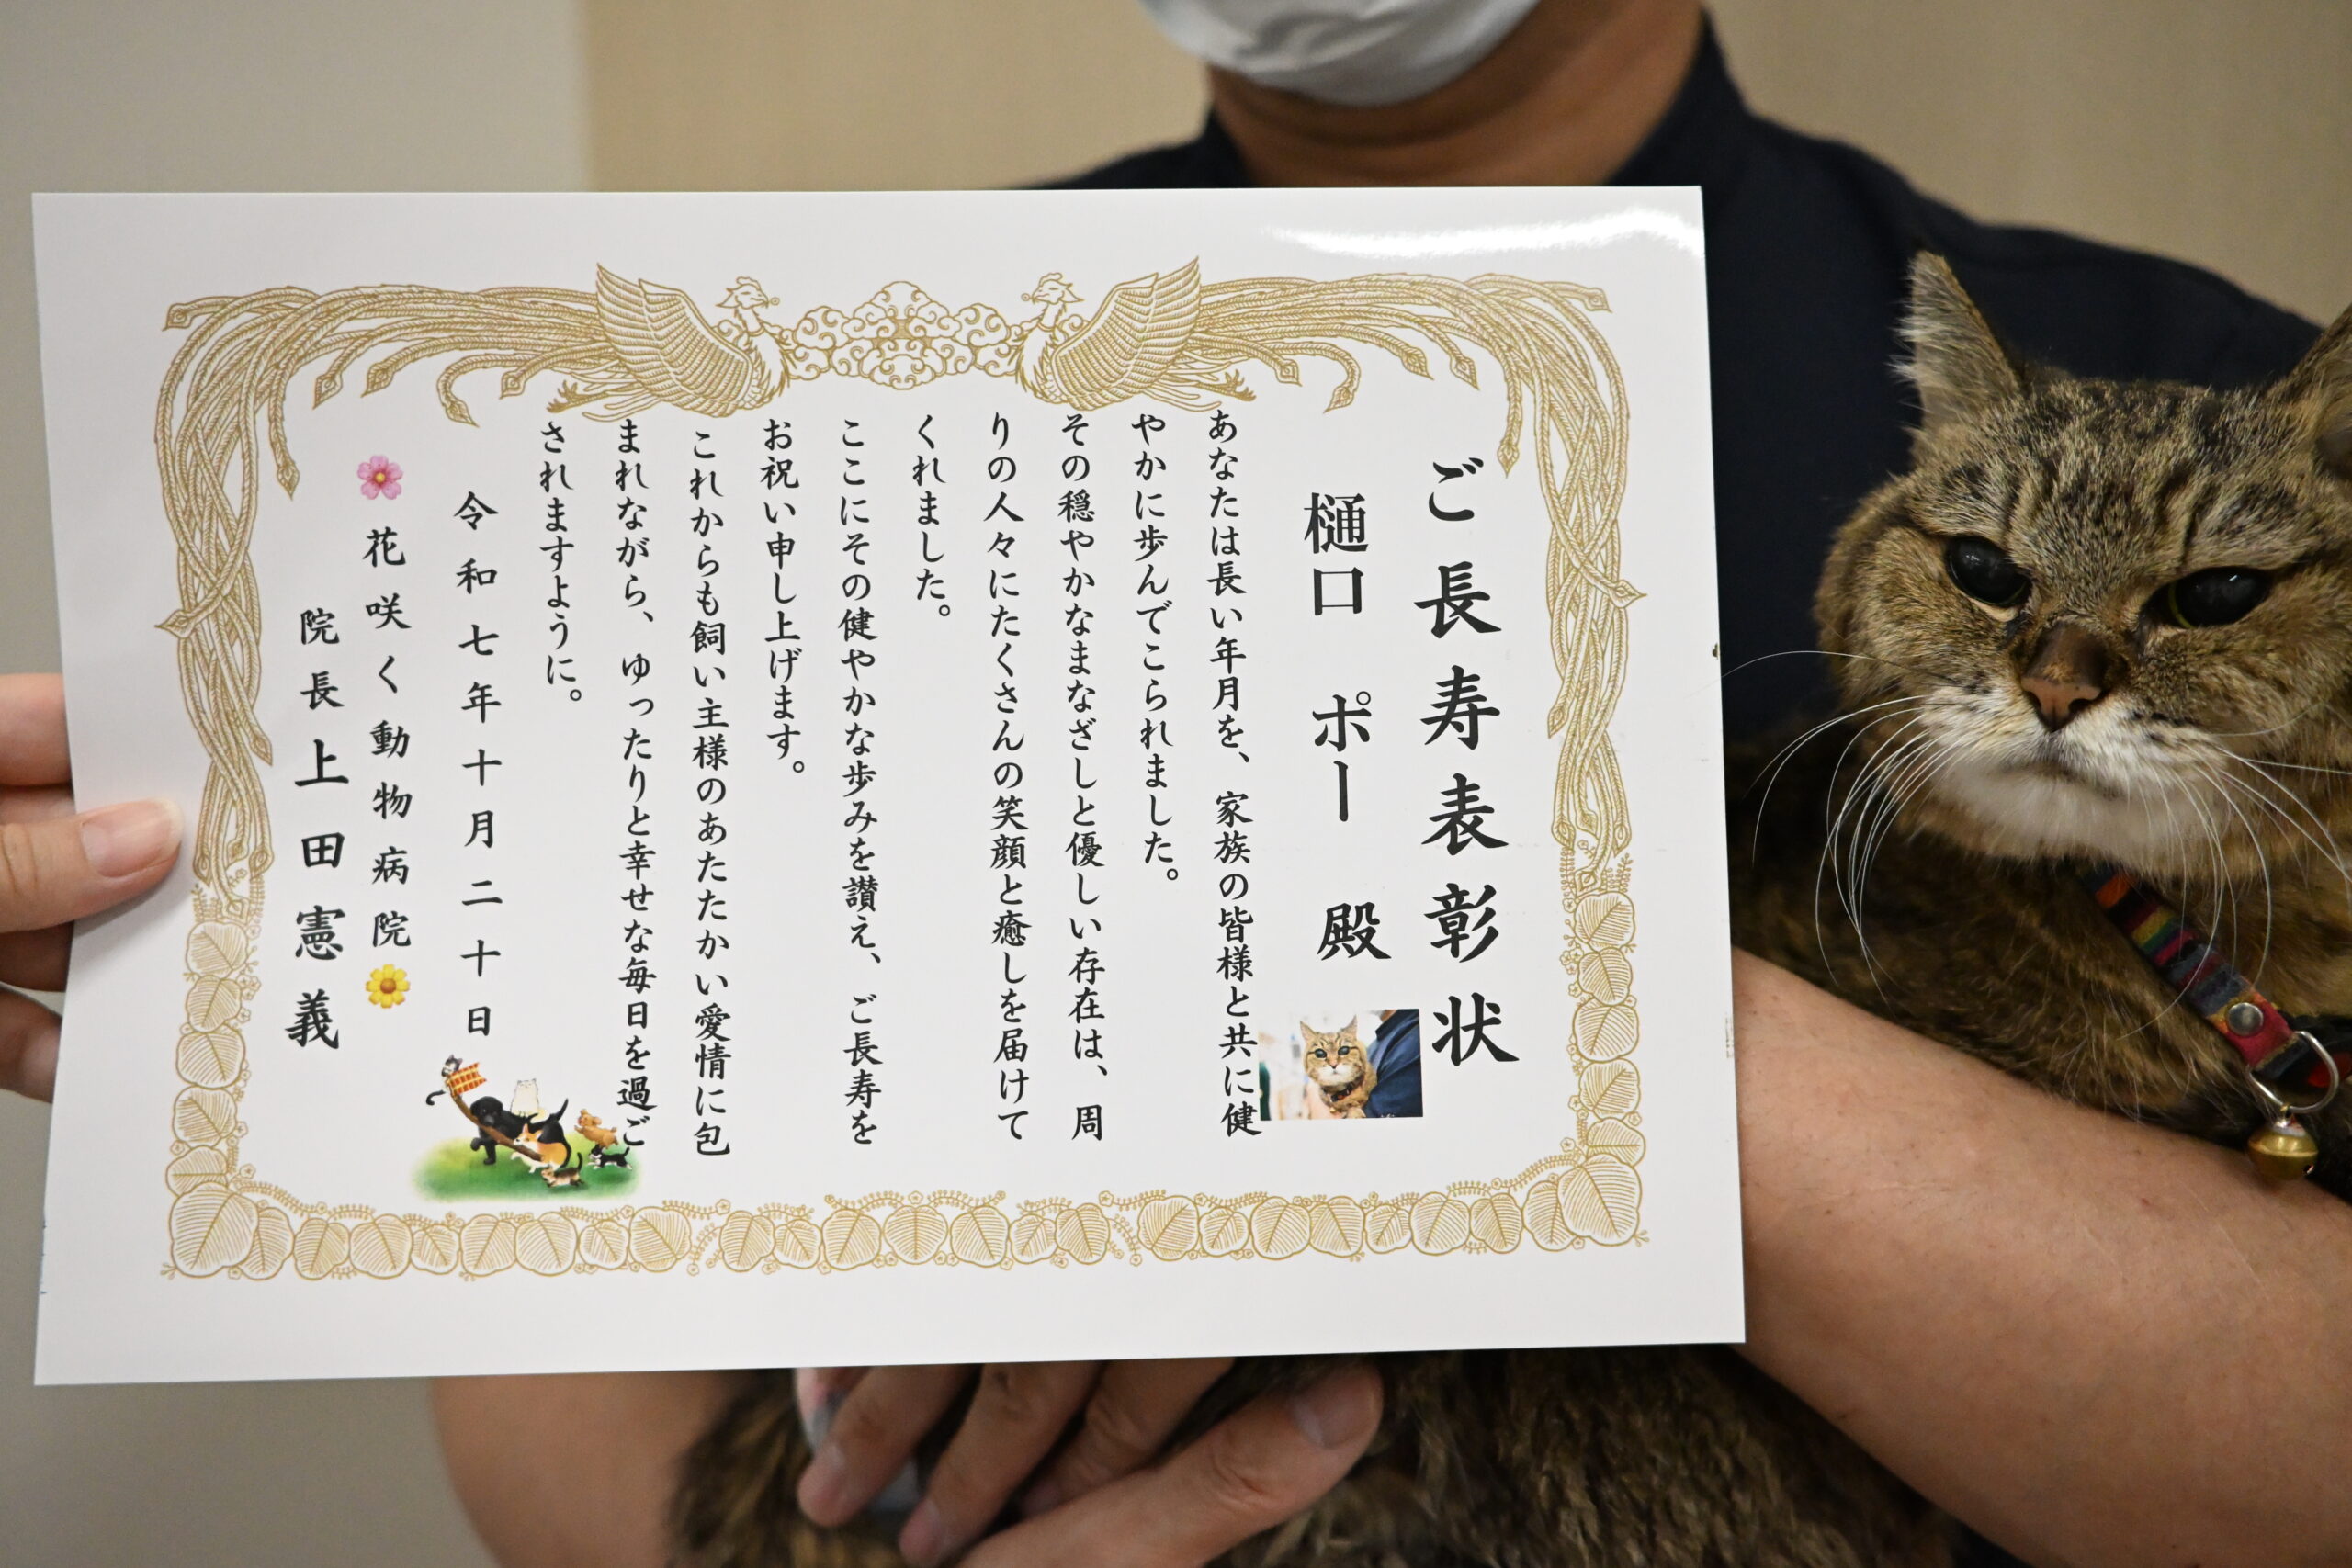 ご長寿表彰状
樋口 ポー 殿
あなたは長い年月を、家族の皆様と共に健
やかに歩んでこられました。
その穏やかなまなざしと優しい存在は、周
りの人々にたくさんの笑顔と癒しを届けて
くれました。
ここにその健やかな歩みを讃え、ご長寿を
お祝い申し上げます。
これからも飼い主様のあたたかい愛情に包
まれながら、ゆったりと幸せな毎日を過ご
されますように。
令和七年十月二十日
花咲く動物病院
院長上田憲義